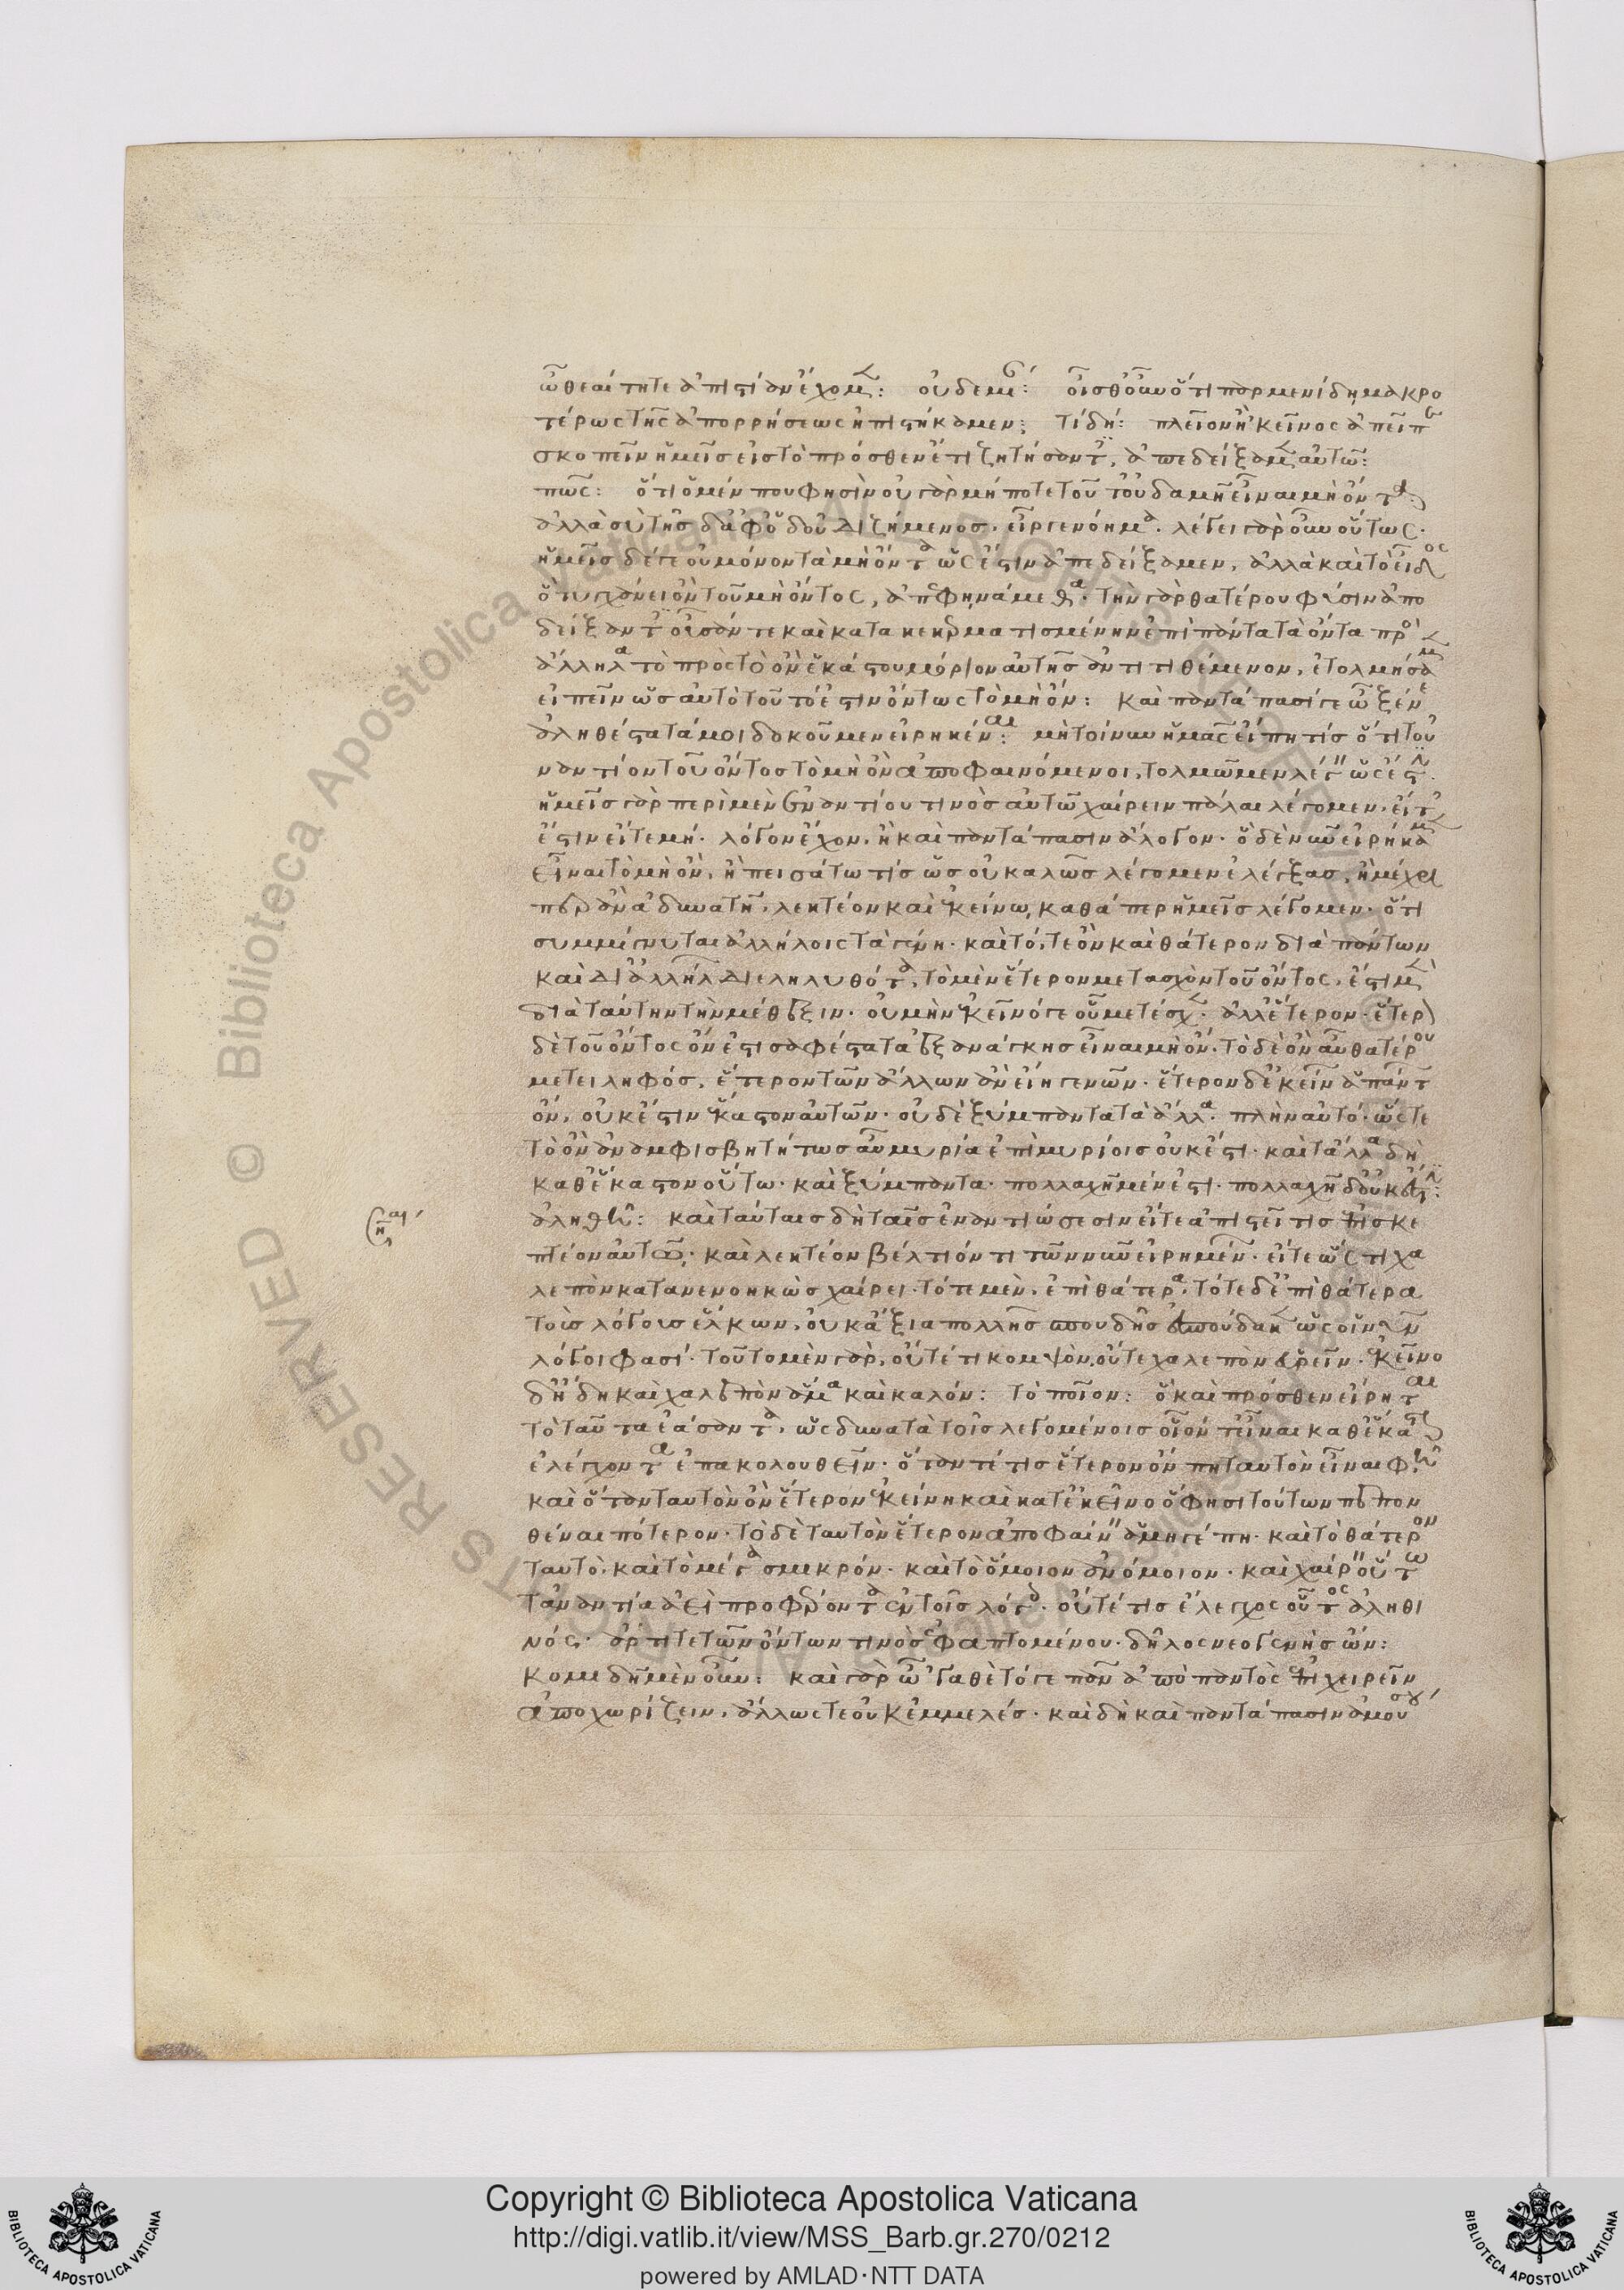 ὦ θεαίτητε ἀπιστίαν ἔχομεν: οὐδεμίαν: οἶσθ' οὖν ὅτι παρμενίδῃ μακρο
τέρως τῆς ἀπορρήσεως ἠπιστήκαμεν; τί δή: πλεῖον ἢ 'κεῖνος ἀπεῖπε
σκοπεῖν ἡμεῖς εἰς τὸ πρόσθεν ἔτι ζητήσαντες, ἀπεδείξαμεν αὐτῷ:
πῶς: ὅτι ὁ μέν που φησὶν οὐ γὰρ μήποτε τοῦτ' οὐδαμῇ εἶναι μὴ ὄντα
ἀλλὰ σὺ τῆσδ' ἀφ' ὁδοῦ διζήμενος. εἶργε νόημα. λέγει γὰρ οὖν οὕτως.
ἡμεῖς δέ γε οὐ μόνον τὰ μὴ ὄντα ὡς ἔστιν ἀπεδείξαμεν, ἀλλὰ καὶ τὸ εἶδος
ὃ τυγχάνει ὂν τοῦ μὴ ὄντος, ἀπεφηνάμεθα. τὴν γὰρ θατέρου φύσιν ἀπο
δείξαντες οὖσάν τε καὶ κατακεκερματισμένην ἐπὶ πάντα τὰ ὄντα πρὸς
ἄλληλα τὸ πρὸς τὸ ὂν ἑκάστου μόριον αὐτῆς ἀντιτιθέμενον, ἐτολμήσαμεν
εἰπεῖν ὡς αὐτὸ τοῦτό ἐστιν ὄντως τὸ μὴ ὄν: καὶ παντάπασί γε ὦ ξένε
ἀληθέστατά μοι δοκοῦμεν εἰρηκέναι: μὴ τοίνυν ἡμᾶς εἴπῃ τίς ὅτι τοὐ
ναντίον τοῦ ὄντος τὸ μὴ ὂν ἀποφαινόμενοι, τολμῶμεν λέγειν ὡς ἔστιν.
ἡμεῖς γὰρ περὶ μὲν ἐναντίου τινὸς αὐτῷ χαίρειν πάλαι λέγομεν. εἴτ'
ἔστιν εἴτε μή. λόγον ἔχον, ἢ καὶ παντάπασιν ἄλογον. ὃ δὲ νῦν εἰρήκαμεν
εἶναι τὸ μὴ ὄν, ἢ πεισάτω τίς ὡς οὐ καλῶς λέγομεν ἐλέγξας, ἢ μέχρι
περ ἂν ἀδυνατῇ, λεκτέον καὶ 'κείνῳ, καθάπερ ἡμεῖς λέγομεν. ὅτι
συμμίγνυται ἀλλήλοις τὰ γένη. καὶ τό, τε ὂν καὶ θάτερον διὰ πάντων
καὶ δι' ἀλλήλων διεληλυθότα, τὸ μὲν ἕτερον μετασχὸν τοῦ ὄντος, ἔστι μὲν
διὰ ταύτην τὴν μέθεξιν. οὐ μὴν 'κεῖνό γε οὗ μετέσχεν. ἀλλ' ἕτερον. ἕτερον
δὲ τοῦ ὄντος ὂν ἔστι σαφέστατα ἐξ ἀνάγκης εἶναι μὴ ὄν. τὸ δὲ ὂν αὖ θατέρου
μετειληφός, ἕτερον τῶν ἄλλων ἂν εἴη γενῶν. ἕτερον δ' ἐκείνων ἁπάντων
ὄν, οὐκ ἔστιν ἕκαστον αὐτῶν. οὐδὲ ξύμπαντα τὰ ἄλλα. πλὴν αὐτό. ὥστε
τὸ ὂν ἀναμφισβητήτως αὖ μυρία ἐπὶ μυρίοις οὐκ ἔστι. καὶ τἆλλα δὴ
καθ' ἕκαστον οὕτω. καὶ ξύμπαντα. πολλαχῇ μὲν ἔστι. πολλαχῇ δ' οὐκ ἔστιν:
ἀληθῆ: καὶ ταύταις δὴ ταῖς ἐναντιώσεσιν εἴτε ἀπιστεῖ τις ἐπισκε
πτέον αὐτῷ. καὶ λεκτέον βέλτιόν τι τῶν νῦν εἰρημένων. εἴτε ὥς τι χα
λεπὸν κατανενοηκὼς χαίρει. τότε μὲν, ἐπὶ θάτερα. τότε δ' ἐπὶ θάτερα
τοὺς λόγους ἕλκων, οὐκ ἄξια πολλῆς σπουδῆς ἐσπούδακεν ὡς οἱ νῦν
λόγοι φασί. τοῦτο μὲν γὰρ, οὔτέ τι κομψὸν, οὔτε χαλεπὸν εὑρεῖν. 'κεῖνο
δ' ἤδη καὶ χαλεπὸν ἅμα καὶ καλόν: τὸ ποῖον: ὃ καὶ πρόσθεν εἴρηται
τὸ ταῦτα ἐάσαντα, ὡς δυνατὰ τοῖς λεγομένοις οἷόν τ' εἶναι καθ' ἕκαστον
ἐλέγχοντα ἐπακολουθεῖν. ὅταν τέ τις ἕτερον ὄν πῃ ταυτὸν εἶναι φῇ
καὶ ὅταν ταυτὸν ὂν ἕτερον 'κείνῃ καὶ κατ' ἐκεῖνο ὅ φησι τούτων πεπον
θέναι πότερον. τὸ δὲ ταυτὸν ἕτερον ἀποφαίνειν ἁμῇ γέ πῃ. καὶ τὸ θάτερον
ταυτὸ. καὶ τὸ μέγα σμικρόν. καὶ τὸ ὅμοιον ἀνόμοιον. καὶ χαίρειν οὕτω
τἀναντία ἀεὶ προφέροντα ἐν τοῖς λόγοις. οὔτέ τις ἔλεγχος οὗτος ἀληθι
νός. ἄρτι τε τῶν ὄντων τινὸς ἐφαπτομένου. δῆλος νεογενὴς ὤν:
κομιδῇ μὲν οὖν: καὶ γὰρ ὦ 'γαθὲ τό γε πᾶν ἀπὸ παντὸς ἐπιχειρεῖν
ἀποχωρίζειν, ἄλλως τε οὐκ ἐμμελές. καὶ δὴ καὶ παντάπασιν ἀμούσου
Copyright © Biblioteca Apostolica Vaticana
http://digi.vatlib.it/view/MSS_Barb.gr.270/0212
powered by AMLAD·NTT DATA